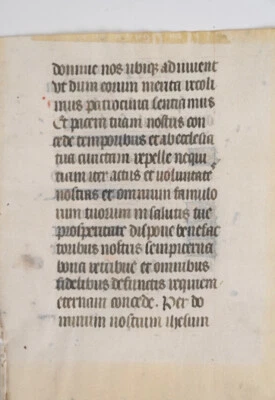 domine nos ubique adiuuent
vt dum eorum merita recoli
mus patrocinia sentiamus
Et pacem tuam nostris con
cede temporibus et ab ecclesia
tua cunctam repelle nequi
tiam iter actus et voluntate
nostras et omnium famulo
rum tuorum in salutis tue
prosperitate dispone benefac
toribus nostris sempiterna
bona retribue et omnibus
fidelibus defunctis requiem
eternam concede. Per do
minum nostrum ihesum